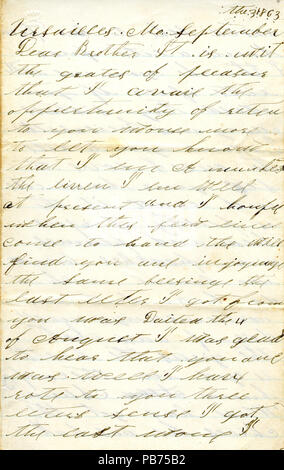 the 3 1863
Versailles Mo September
Dear Brother It is with
the grates of pleasure
that I avail the
oppertunity of riten
to you wonse more
to let you know
that I am
the liven I am Well
at present and I hope
when this few lines
come to hand the will
find you all injoying
the same blessings the
last leter I got from
you was Dated the 4
of August I was glad
to hear that you all
was Well I have
rote to you three
leters sense I got
the last wons I
alamy stock photo
Image ID: PB75B2
www.alamy.com